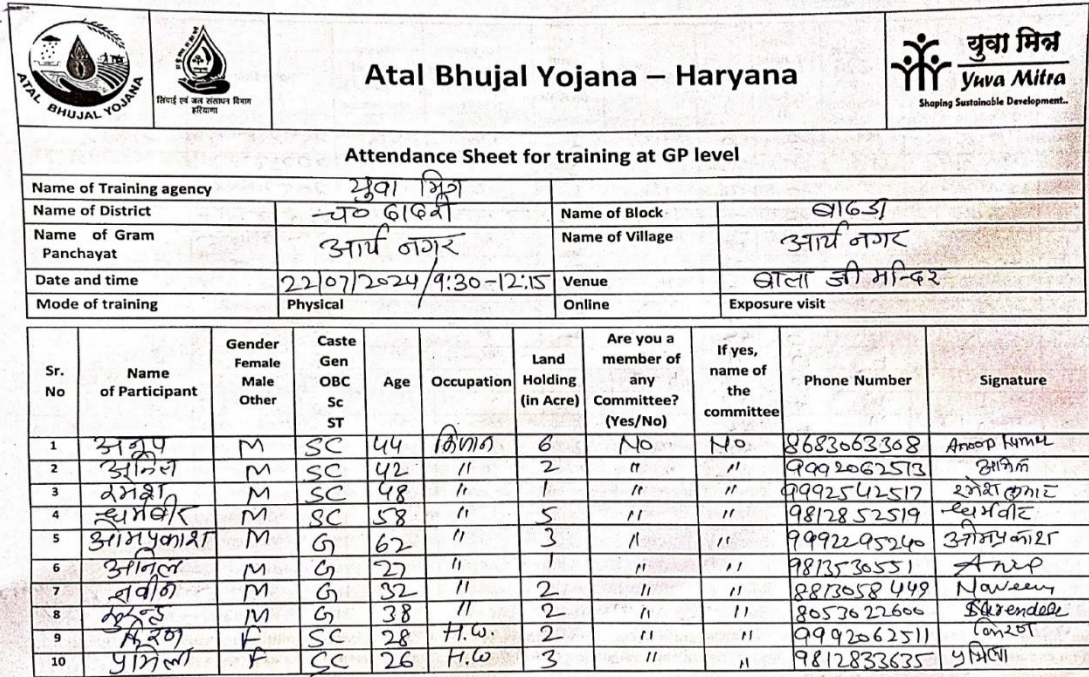 ATAL BHUJAL YOJANA
सिंचाई एवं जल संसाधन विभाग
हरियाणा
Atal Bhujal Yojana – Haryana
युवा मित्र
Yuva Mitra
Shaping Sustainable Development..
Attendance Sheet for training at GP level
Name of Training agency युवा मित्र
Name of District च० दादरी Name of Block बाढडा
Name of Gram Panchayat आर्य नगर Name of Village आर्य नगर
Date and time 22/07/2024/9:30-12:15 Venue बाला जी मन्दिर
Mode of training Physical Online Exposure visit
Sr. No Name of Participant Gender Female Male Other Caste Gen OBC Sc ST Age Occupation Land Holding (in Acre) Are you a member of any Committee? (Yes/No) If yes, name of the committee Phone Number Signature
1 अनूप M SC 44 किसान 6 No No 8683063308 Anoop Kumar
2 अनिल M SC 42 " 2 " " 9992062513 अनिल
3 रमेश M SC 48 " 1 " " 9992542517 रमेश कुमार
4 धर्मवीर M SC 58 " 5 " " 9812852519 धर्मवीर
5 ओमप्रकाश M G 62 " 3 " " 9992295240 ओमप्रकाश
6 अनिल M G 27 " 1 " " 9813530551
7 नवीन M G 32 " 2 " " 8813058449 Naveen
8 M G 38 " 2 " " 8053022600
9 किरण F SC 28 H.W 2 " " 9992062511 किरण
10 प्रमिला F SC 26 H.W 3 " " 9812833635 प्रमिला